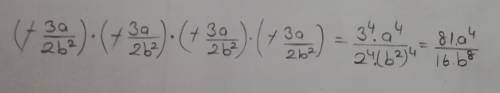 (-3a/2b²)·(-3a/2b²)·(-3a/2b²)·(-3a/2b²) = 3⁴·a⁴/2⁴·(b²)⁴ = 81·a⁴/16·b⁸